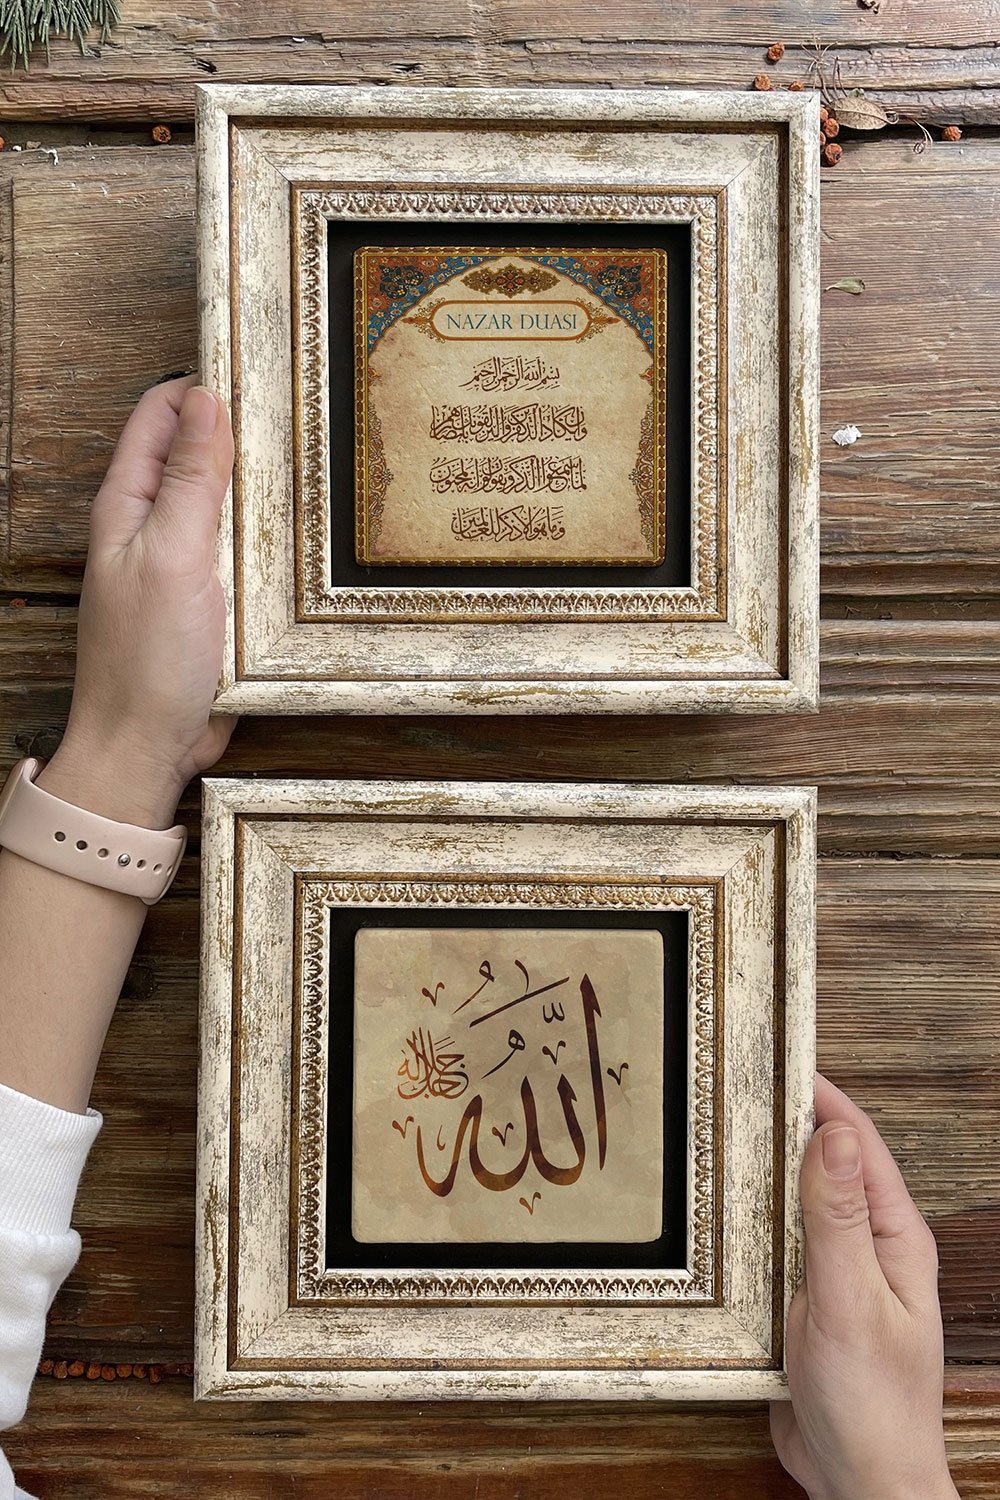 NAZAR DUASI
بسم الله الرحمن الرحيم
وإن يكاد الذين كفروا ليزلقونك بأبصارهم
لما سمعوا الذكر ويقولون إنه لمجنون
وما هو إلا ذكر للعالمين
الله
جل جلاله